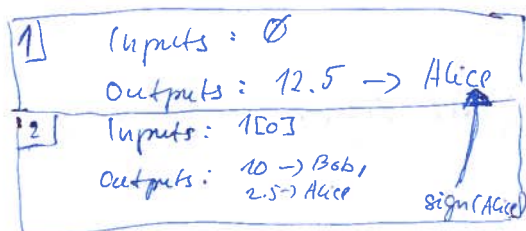 1 Inputs : Ø
Outputs : 12.5 -> Alice
2 Inputs : 1[0]
Outputs : 10 -> Bob,
2.5 -> Alice
sign(Alice)